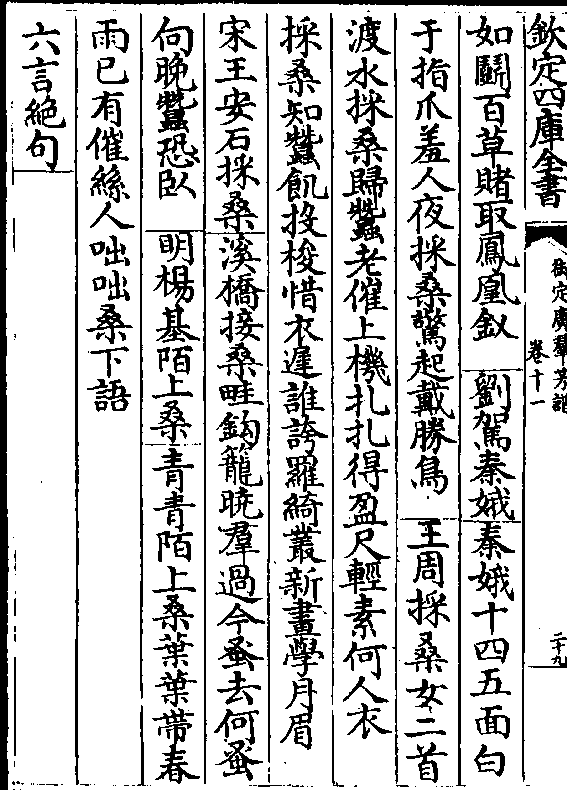 欽定四庫全書
御定廣羣芳譜
卷十一
二十九
如鬭百草賭取鳳凰釵 劉駕秦娥秦娥十四五面白
于指爪羞人夜採桑驚起戴勝鳥 王周採桑女二首
渡水採桑歸蠶老催上機扎扎得盈尺輕素何人衣
採桑知蠶飢投梭惜衣遲誰誇羅綺叢新畫學月眉
宋王安石採桑溪橋接桑畦鈎籠曉羣過今蚤去何蚤
向晚蠶恐臥 明楊基陌上桑青青陌上桑葉葉帶春
雨已有催絲人咄咄桑下語
六言絶句